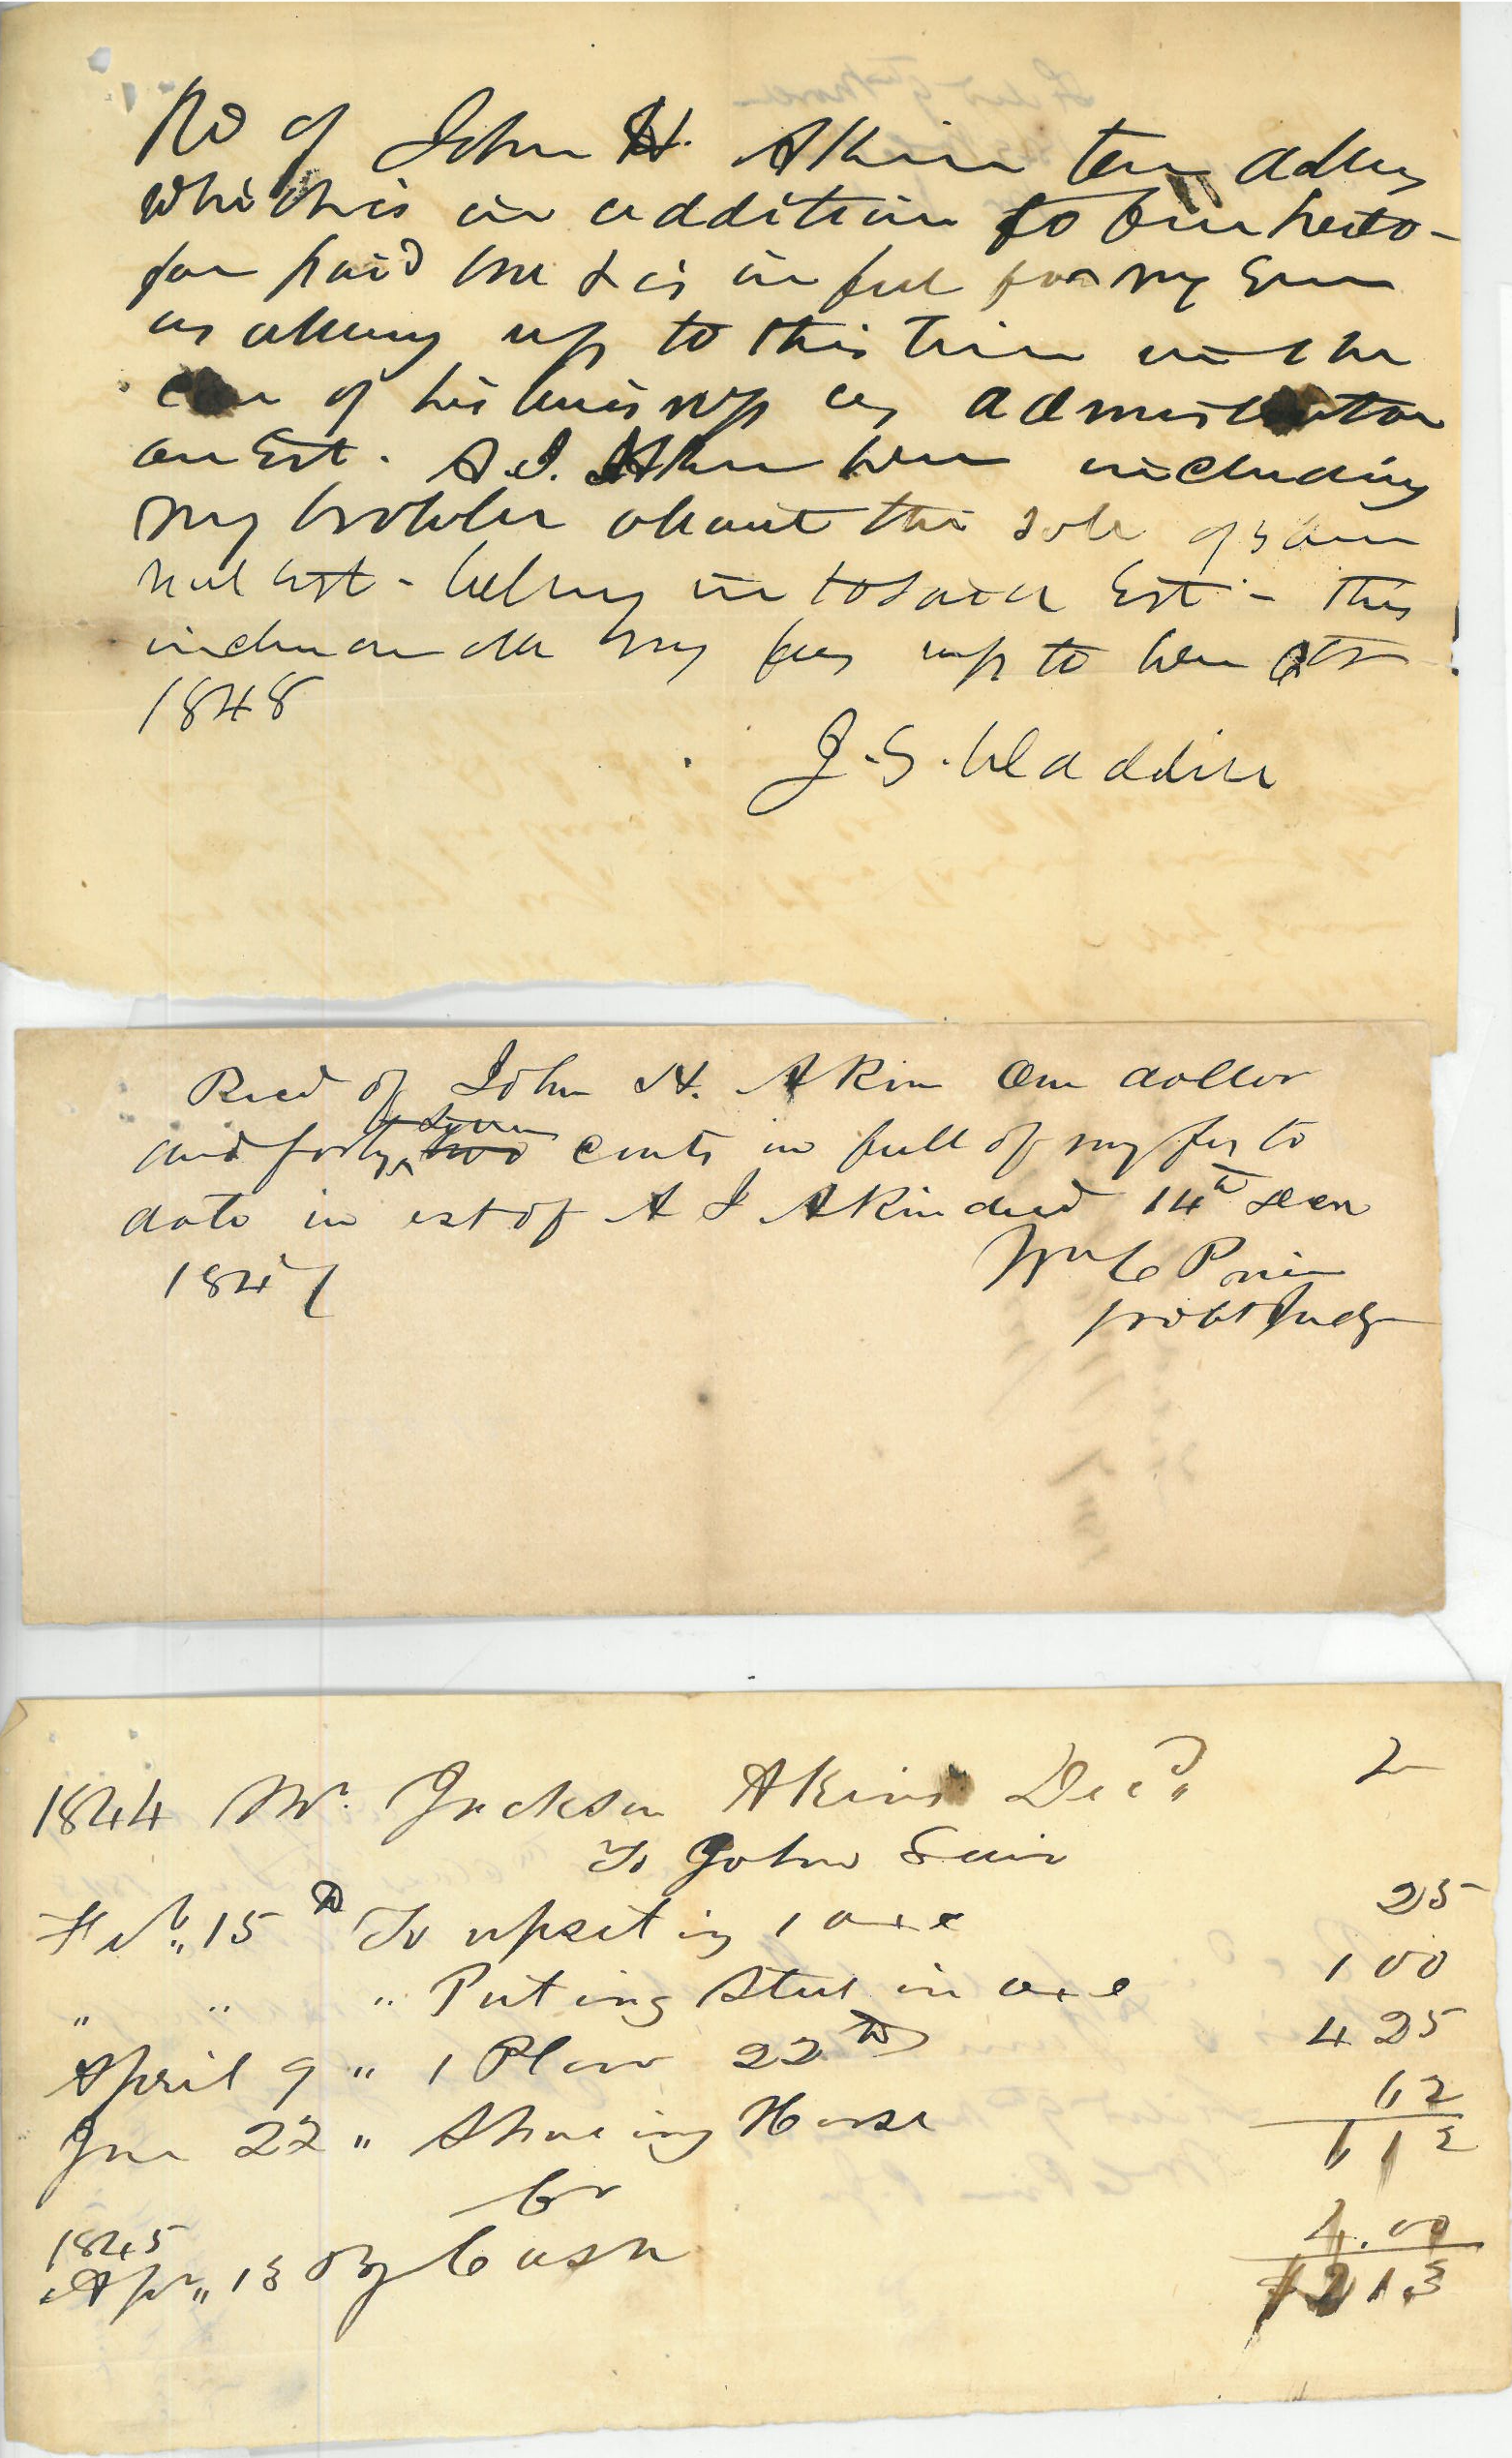 Rd of John H. Akin ten dollars
which is in addition to ten hereto-
fore paid me & is in full for my serv
as attorney up to this time in the
of his business as administrator
on Est. A. J. Akin here including
my trouble about the sale of same
real Est - belong in to said Est - this
all my fees up to
1848
J. S. Claddin
Recd of John H. Akin One dollar
seven
and forty two cents in full of my fees to
date in est of A J Akin decd 14th Decr
1847
Wm C Prin
probt Judge
1844 Mr. Jackson Akins Decd 2
To John Sain
Feb. 15th To upseting 1 axe 25
" " " Puting Steel in axe 1 00
April 9 " 1 Plow 22th 4 25
Jun 22 " Shoeing Horse 62
6 12
Cr
1845
Apr " 13 By Cash 4.00
213